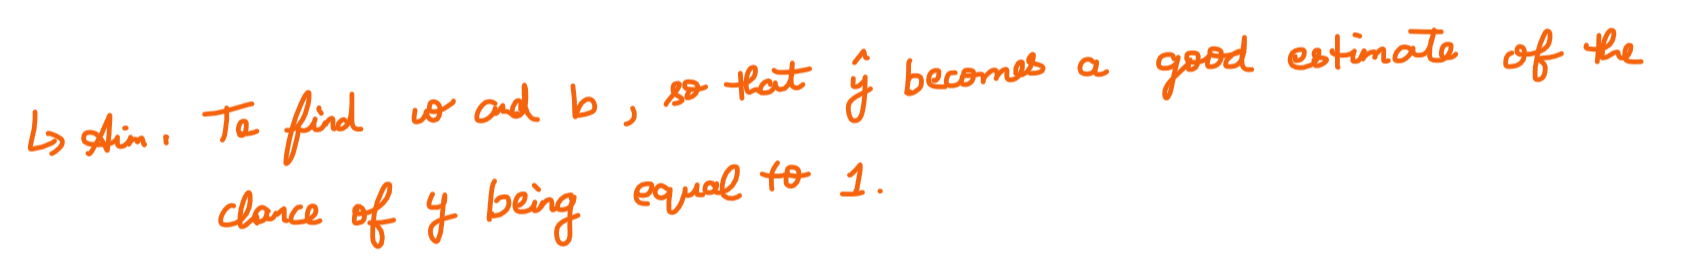 ↳ Aim. To find w and b, so that ŷ becomes a good estimate of the
chance of y being equal to 1.